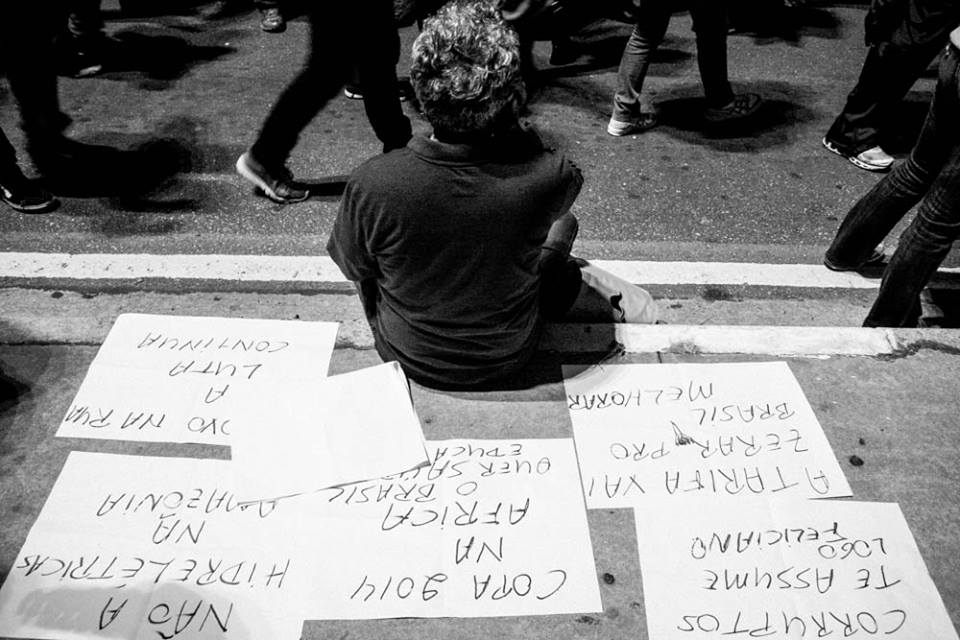 OVO NA RUA
A
LUTA
CONTINUA
NÃO A
HIDRELÉTRICAS
NA
AMAZÔNIA
COPA 2014
NA
AFRICA
O BRASIL
QUER
EDUCA
A TARIFA VAI
ZERAR PRO
BRASIL
MELHORAR
CORRUPTOS
TE ASSUME
LOGO
FELICIANO